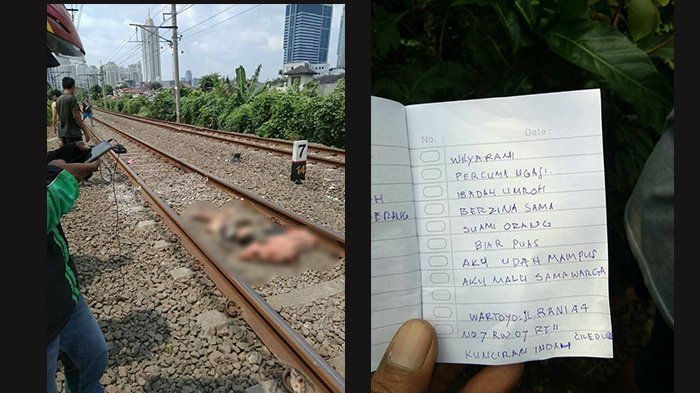 7
No. : Date :
PERCUMA NGAJI.
IBADAH UMROH
BERZINA SAMA
SUAMI ORANG
BIAR PUAS
AKU UDAH MAMPUS
AKU MALU SAMA WARGA
WARTOYO. JL RANI A4
NO 7 RW 07 RT 11
KUNCIRAN INDAH
ERANG